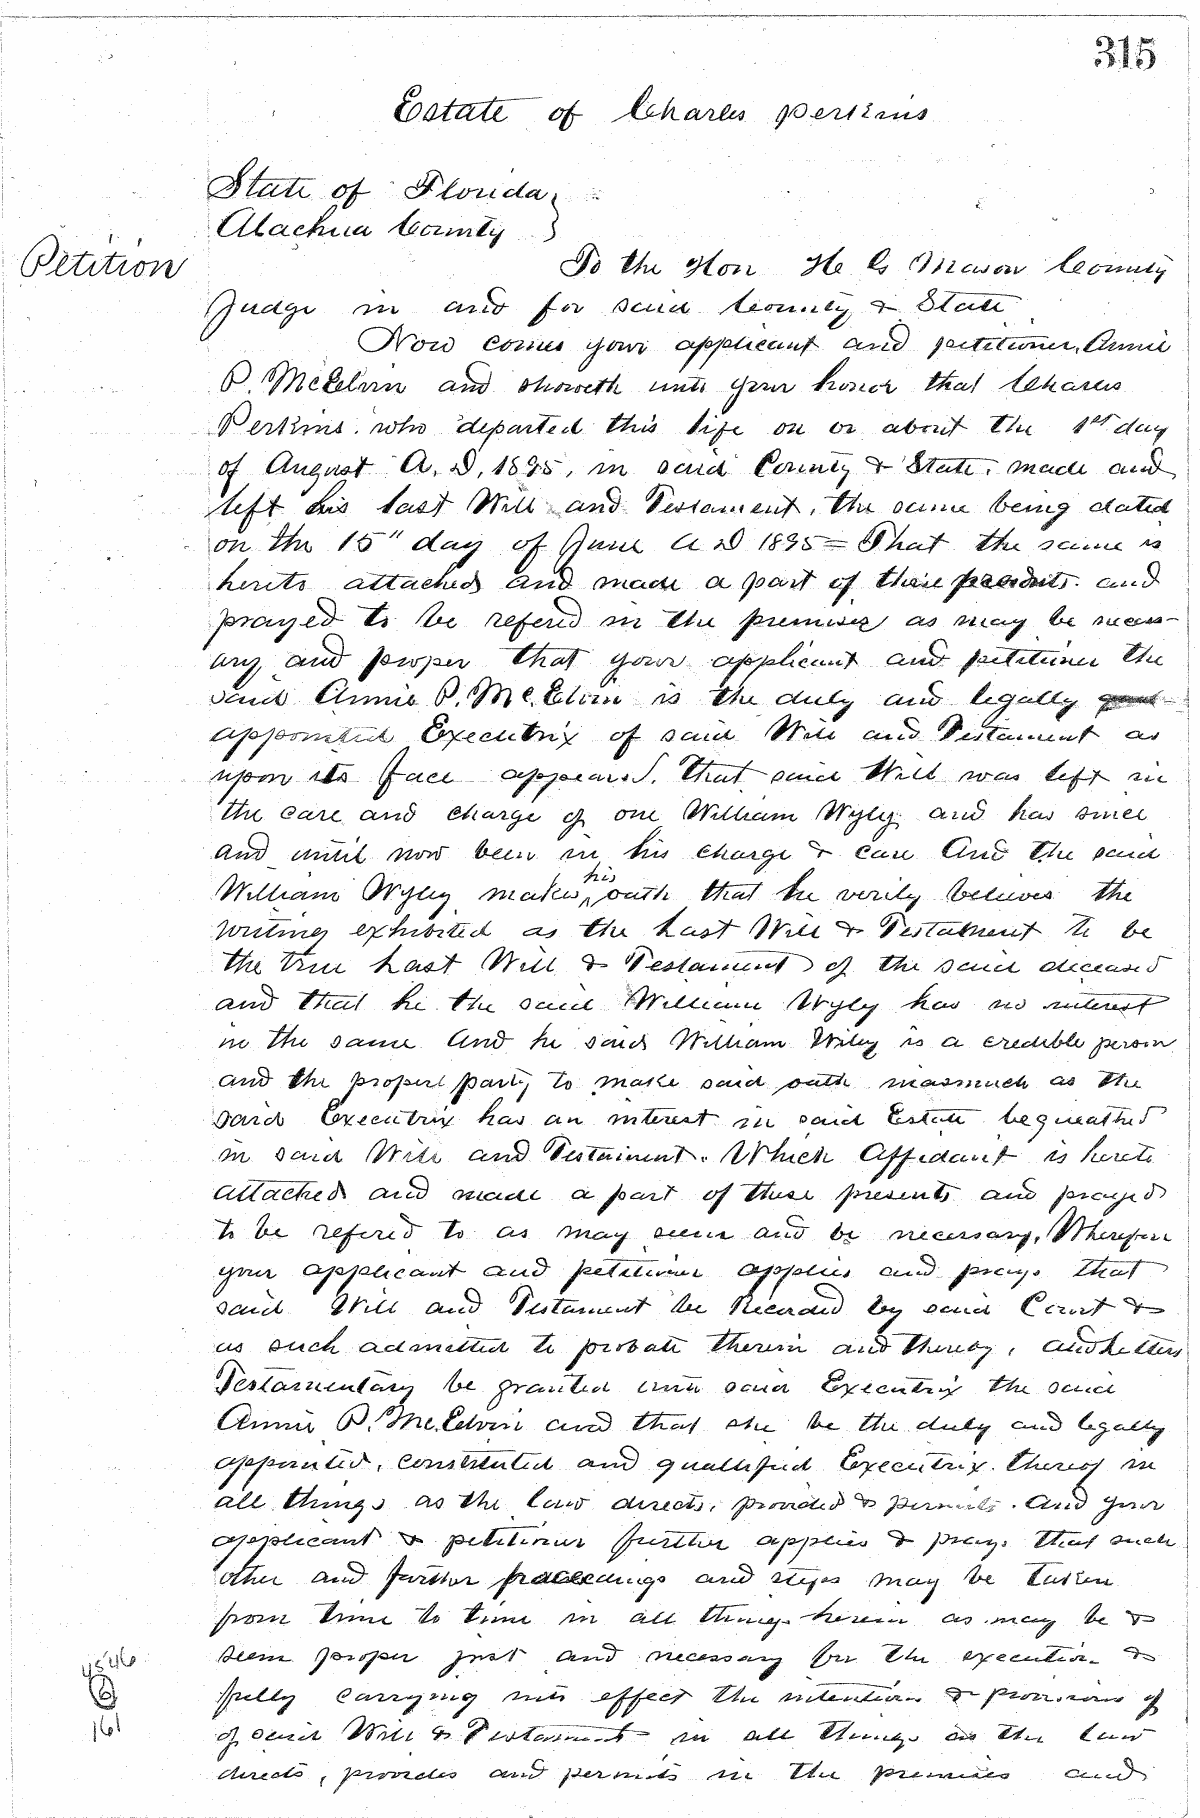 315
Estate of Charles Perkins
State of Florida
Alachua County
Petition
To the Hon H G Mason County
Judge in and for said County & State
Now comes your applicant and petitioner, Annie
P. McElvin and showeth unto your honor that Charles
Perkins who departed this life on or about the 1st day
of August A. D. 1895, in said County & State, made and
left his last Will and Testament, the same being dated
on the 15" day of June A D 1895 = That the same is
hereto attached and made a part of these presents and
prayed to be refered in the premises as may be necess-
ary and proper that your applicant and petitioner the
said Annie P. McElvin is the duly and legally
appointed Executrix of said Will and Testament as
upon its face appears. That said Will was left in
the care and charge of one William Wyly and has since
and until now been in his charge & care And the said
William Wyly makes his oath that he verily believes the
writing exhibited as the Last Will & Testament to be
the true Last Will & Testament of the said deceased
and that he the said William Wyly has no interest
in the same And he said William Wiley is a credible person
and the proper party to make said oath inasmuch as the
said Executrix has an interest in said Estate bequeathed
in said Will and Testament. Which Affidavit is hereto
attached and made a part of these presents and prayed
to be refered to as may seem and be necessary. Wherefore
your applicant and petitioner applies and prays that
said Will and Testament be Recorded by said Court &
as such admitted to probate therein and thereby, and Letters
Testamentary be granted unto said Executrix the said
Annie P. McElvin and that she be the duly and legally
appointed, constituted and qualified Executrix thereof in
all things as the law directs, provides & permits. And your
applicant & petitioner further applies & prays that such
other and further proceedings and steps may be taken
from time to time in all things herein as may be &
seem proper just and necessary for the execution &
fully carrying into effect the intentions & provisions of
of said Will & Testament in all things as the law
directs, provides and permits in the premises and
4546
6
161